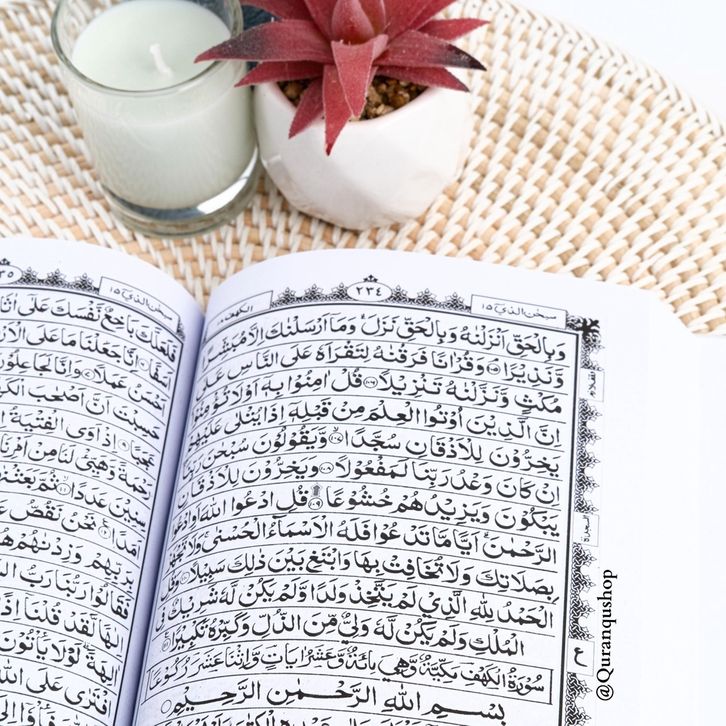 سبحٰن الذیٓ ١٥
٢٣٤
الکهف ١٨
وَبِالْحَقِّ اَنْزَلْنٰهُ وَبِالْحَقِّ نَزَلَ ؕ وَمَاۤ اَرْسَلْنٰكَ اِلَّا مُبَشِّرًا
وَّنَذِيْرًا ﴿١٠٥﴾ وَقُرْاٰنًا فَرَقْنٰهُ لِتَقْرَاَهٗ عَلَى النَّاسِ عَلٰى
مُكْثٍ وَّنَزَّلْنٰهُ تَنْزِيْلًا ﴿١٠٦﴾ قُلْ اٰمِنُوْا بِهٖۤ اَوْ لَا تُؤْمِنُوْا
اِنَّ الَّذِيْنَ اُوْتُوا الْعِلْمَ مِنْ قَبْلِهٖۤ اِذَا يُتْلٰى عَلَيْهِمْ
يَخِرُّوْنَ لِلْاَذْقَانِ سُجَّدًا ﴿١٠٧﴾ وَّيَقُوْلُوْنَ سُبْحٰنَ رَبِّنَاۤ
اِنْ كَانَ وَعْدُ رَبِّنَا لَمَفْعُوْلًا ﴿١٠٨﴾ وَيَخِرُّوْنَ لِلْاَذْقَانِ
يَبْكُوْنَ وَيَزِيْدُهُمْ خُشُوْعًا ﴿١٠٩﴾ قُلِ ادْعُوا اللّٰهَ اَوِ ادْعُوا
الرَّحْمٰنَ ؕ اَيًّا مَّا تَدْعُوْا فَلَهُ الْاَسْمَآءُ الْحُسْنٰى ۚ وَلَا تَجْهَرْ
بِصَلَاتِكَ وَلَا تُخَافِتْ بِهَا وَابْتَغِ بَيْنَ ذٰلِكَ سَبِيْلًا ﴿١١٠﴾ وَقُلِ
الْحَمْدُ لِلّٰهِ الَّذِيْ لَمْ يَتَّخِذْ وَلَدًا وَّلَمْ يَكُنْ لَّهٗ شَرِيْكٌ فِي
الْمُلْكِ وَلَمْ يَكُنْ لَّهٗ وَلِيٌّ مِّنَ الذُّلِّ وَكَبِّرْهُ تَكْبِيْرًا ﴿١١١﴾
سُوْرَةُ الْكَهْفِ مَكِّيَّةٌ وَّهِيَ مِائَةٌ وَّعَشْرُ اٰيَاتٍ وَّاثْنَا عَشَرَ رُكُوْعًا
بِسْمِ اللّٰهِ الرَّحْمٰنِ الرَّحِيْمِ
السجدة
ع
@Quranqushop
سبحٰن الذیٓ ١٥
فَلَعَلَّكَ بَاخِعٌ نَّفْسَكَ عَلٰۤى
اَسَفًا ﴿٦﴾ اِنَّا جَعَلْنَا مَا عَلَى
اَحْسَنُ عَمَلًا ﴿٧﴾ وَاِنَّا لَجَاعِلُوْنَ
حَسِبْتَ اَنَّ اَصْحٰبَ
عَجَبًا ﴿٩﴾ اِذْ اَوَى الْفِتْيَةُ
رَحْمَةً وَّهَيِّئْ لَنَا مِنْ اَمْرِنَا
سِنِيْنَ عَدَدًا ﴿١١﴾ ثُمَّ بَعَثْنٰهُمْ
اَمَدًا ﴿١٢﴾ نَحْنُ نَقُصُّ
بِرَبِّهِمْ وَزِدْنٰهُمْ
فَقَالُوْا رَبُّنَا رَبُّ
اِلٰهًا لَّقَدْ قُلْنَاۤ اِذًا
اٰلِهَةً ؕ لَوْلَا يَاْتُوْنَ
افْتَرٰى عَلَى اللّٰهِ